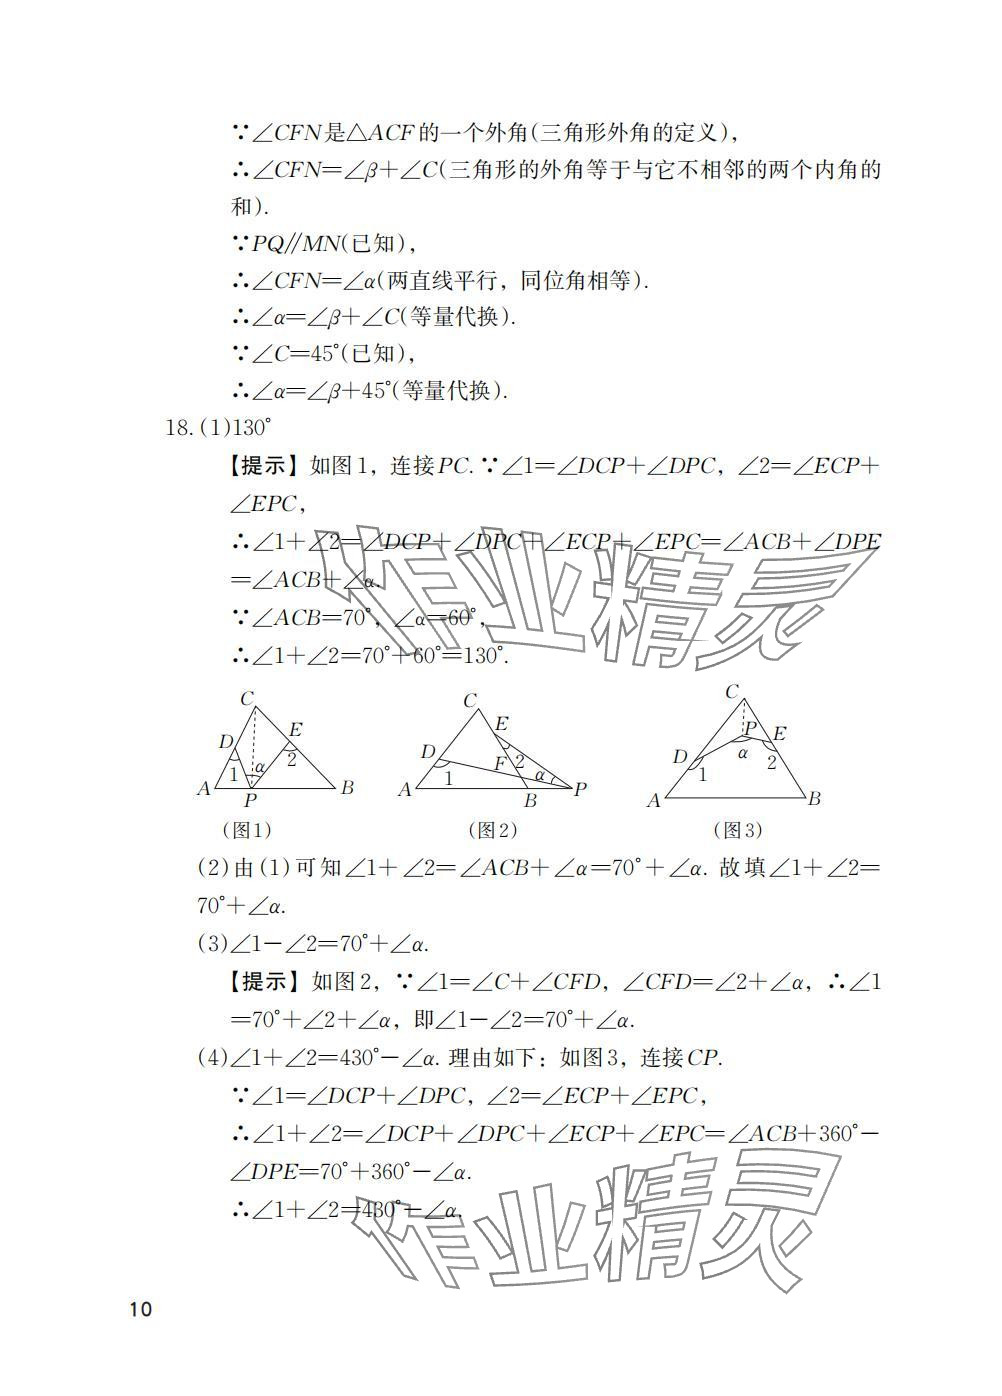 ∵∠CFN是△ACF的一个外角(三角形外角的定义),
∴∠CFN=∠β+∠C(三角形的外角等于与它不相邻的两个内角的
和).
∵PQ∥MN(已知),
∴∠CFN=∠α(两直线平行，同位角相等).
∴∠α=∠β+∠C(等量代换).
∵∠C=45°(已知),
∴∠α=∠β+45°(等量代换).
18.(1)130°
【提示】如图1，连接PC.∵∠1=∠DCP+∠DPC，∠2=∠ECP+
∠EPC,
∴∠1+∠2=∠DCP+∠DPC+∠ECP+∠EPC=∠ACB+∠DPE
=∠ACB+∠α.
∵∠ACB=70°，∠α=60°,
∴∠1+∠2=70°+60°=130°.
作业精灵
C D E 1 α 2 A P B
(图1)
C E D F 2 1 α A B P
(图2)
C P E D α 2 1 A B
(图3)
(2)由(1)可知∠1+∠2=∠ACB+∠α=70°+∠α. 故填∠1+∠2=
70°+∠α.
(3)∠1-∠2=70°+∠α.
【提示】如图2，∵∠1=∠C+∠CFD，∠CFD=∠2+∠α，∴∠1
=70°+∠2+∠α，即∠1-∠2=70°+∠α.
(4)∠1+∠2=430°-∠α. 理由如下：如图3，连接CP.
∵∠1=∠DCP+∠DPC，∠2=∠ECP+∠EPC,
∴∠1+∠2=∠DCP+∠DPC+∠ECP+∠EPC=∠ACB+360°-
∠DPE=70°+360°-∠α.
∴∠1+∠2=430°-∠α.
作业精灵
10